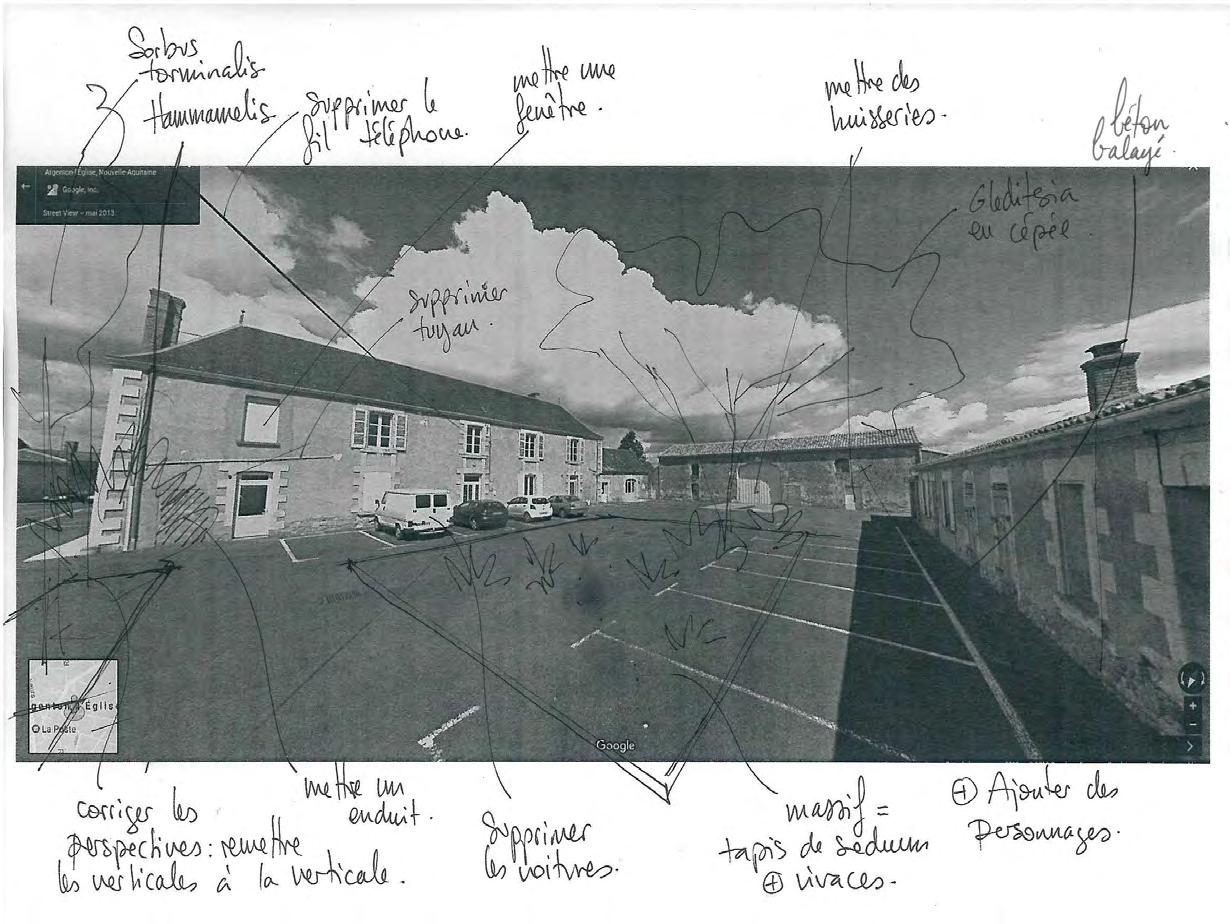 Sorbus
torminalis
Hammamelis
supprimer le
fil téléphone.
mettre une
fenêtre.
mettre des
huisseries.
béton
balayé.
Argenton-l'Église, Nouvelle-Aquitaine
Google, Inc.
Street View – mai 2013
Gleditsia
en cépée.
supprimer
tuyau.
Église
La Poste
Google
corriger les
perspectives : remettre
les verticales à la verticale.
mettre un
enduit.
Supprimer
les voitures.
massif =
tapis de sedums
⊕ vivaces.
⊕ Ajouter des
personnages.